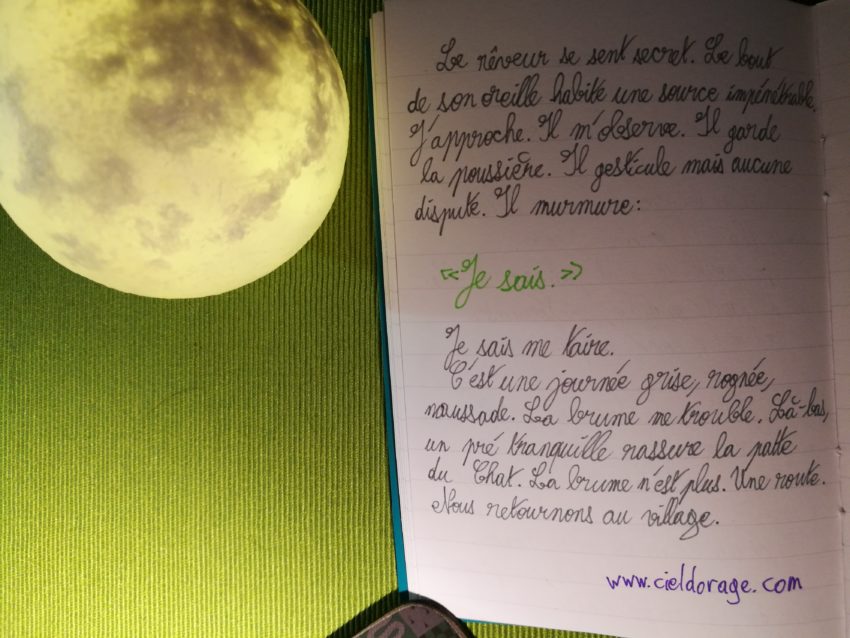 Le rêveur se sent secret. Le bout
de son oreille habite une source impénétrable.
J'approche. Il m'observe. Il garde
la poussière. Il gesticule mais aucune
dispute. Il murmure :
«Je sais.»
Je sais me taire.
C'est une journée grise, rognée,
maussade. La brume me trouble. Là-bas,
un pré tranquille rassure la patte
du Chat. La brume n'est plus. Une route.
Nous retournons au village.
www.cieldorage.com